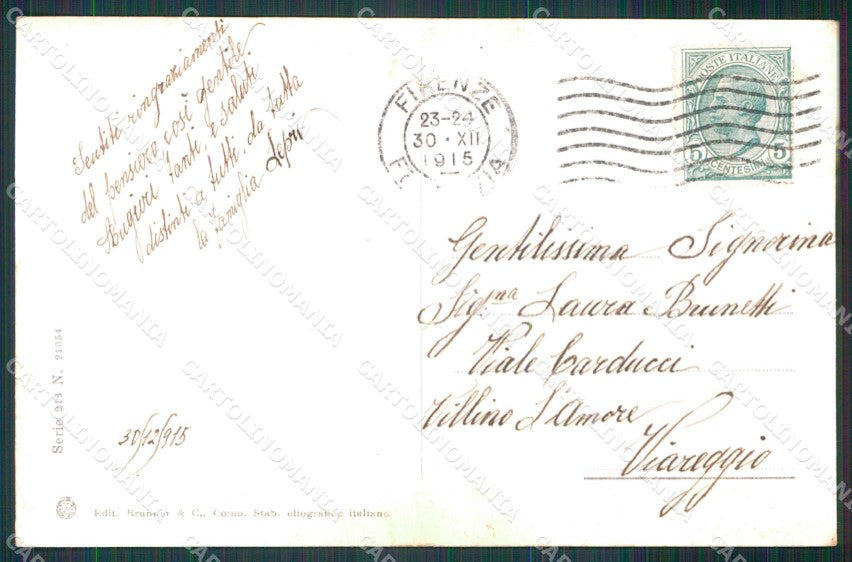 Sentiti ringraziamenti
del pensiero così gentile
Auguri tanti, e saluti
distinti a tutti, da tutta
la famiglia Lepri
30/12/915
Serie 213 N. 21354
Edit. Brunner & C., Como. Stab. eliografico italiano
FIRENZE
23-24
30·XII
1915
POSTE ITALIANE
5 5
CENTESIMI
Gentilissima Signorina
Sig:na Laura Brunetti
Viale Carducci
Villino L'Amore
Viareggio
CARTOLINOMANIA